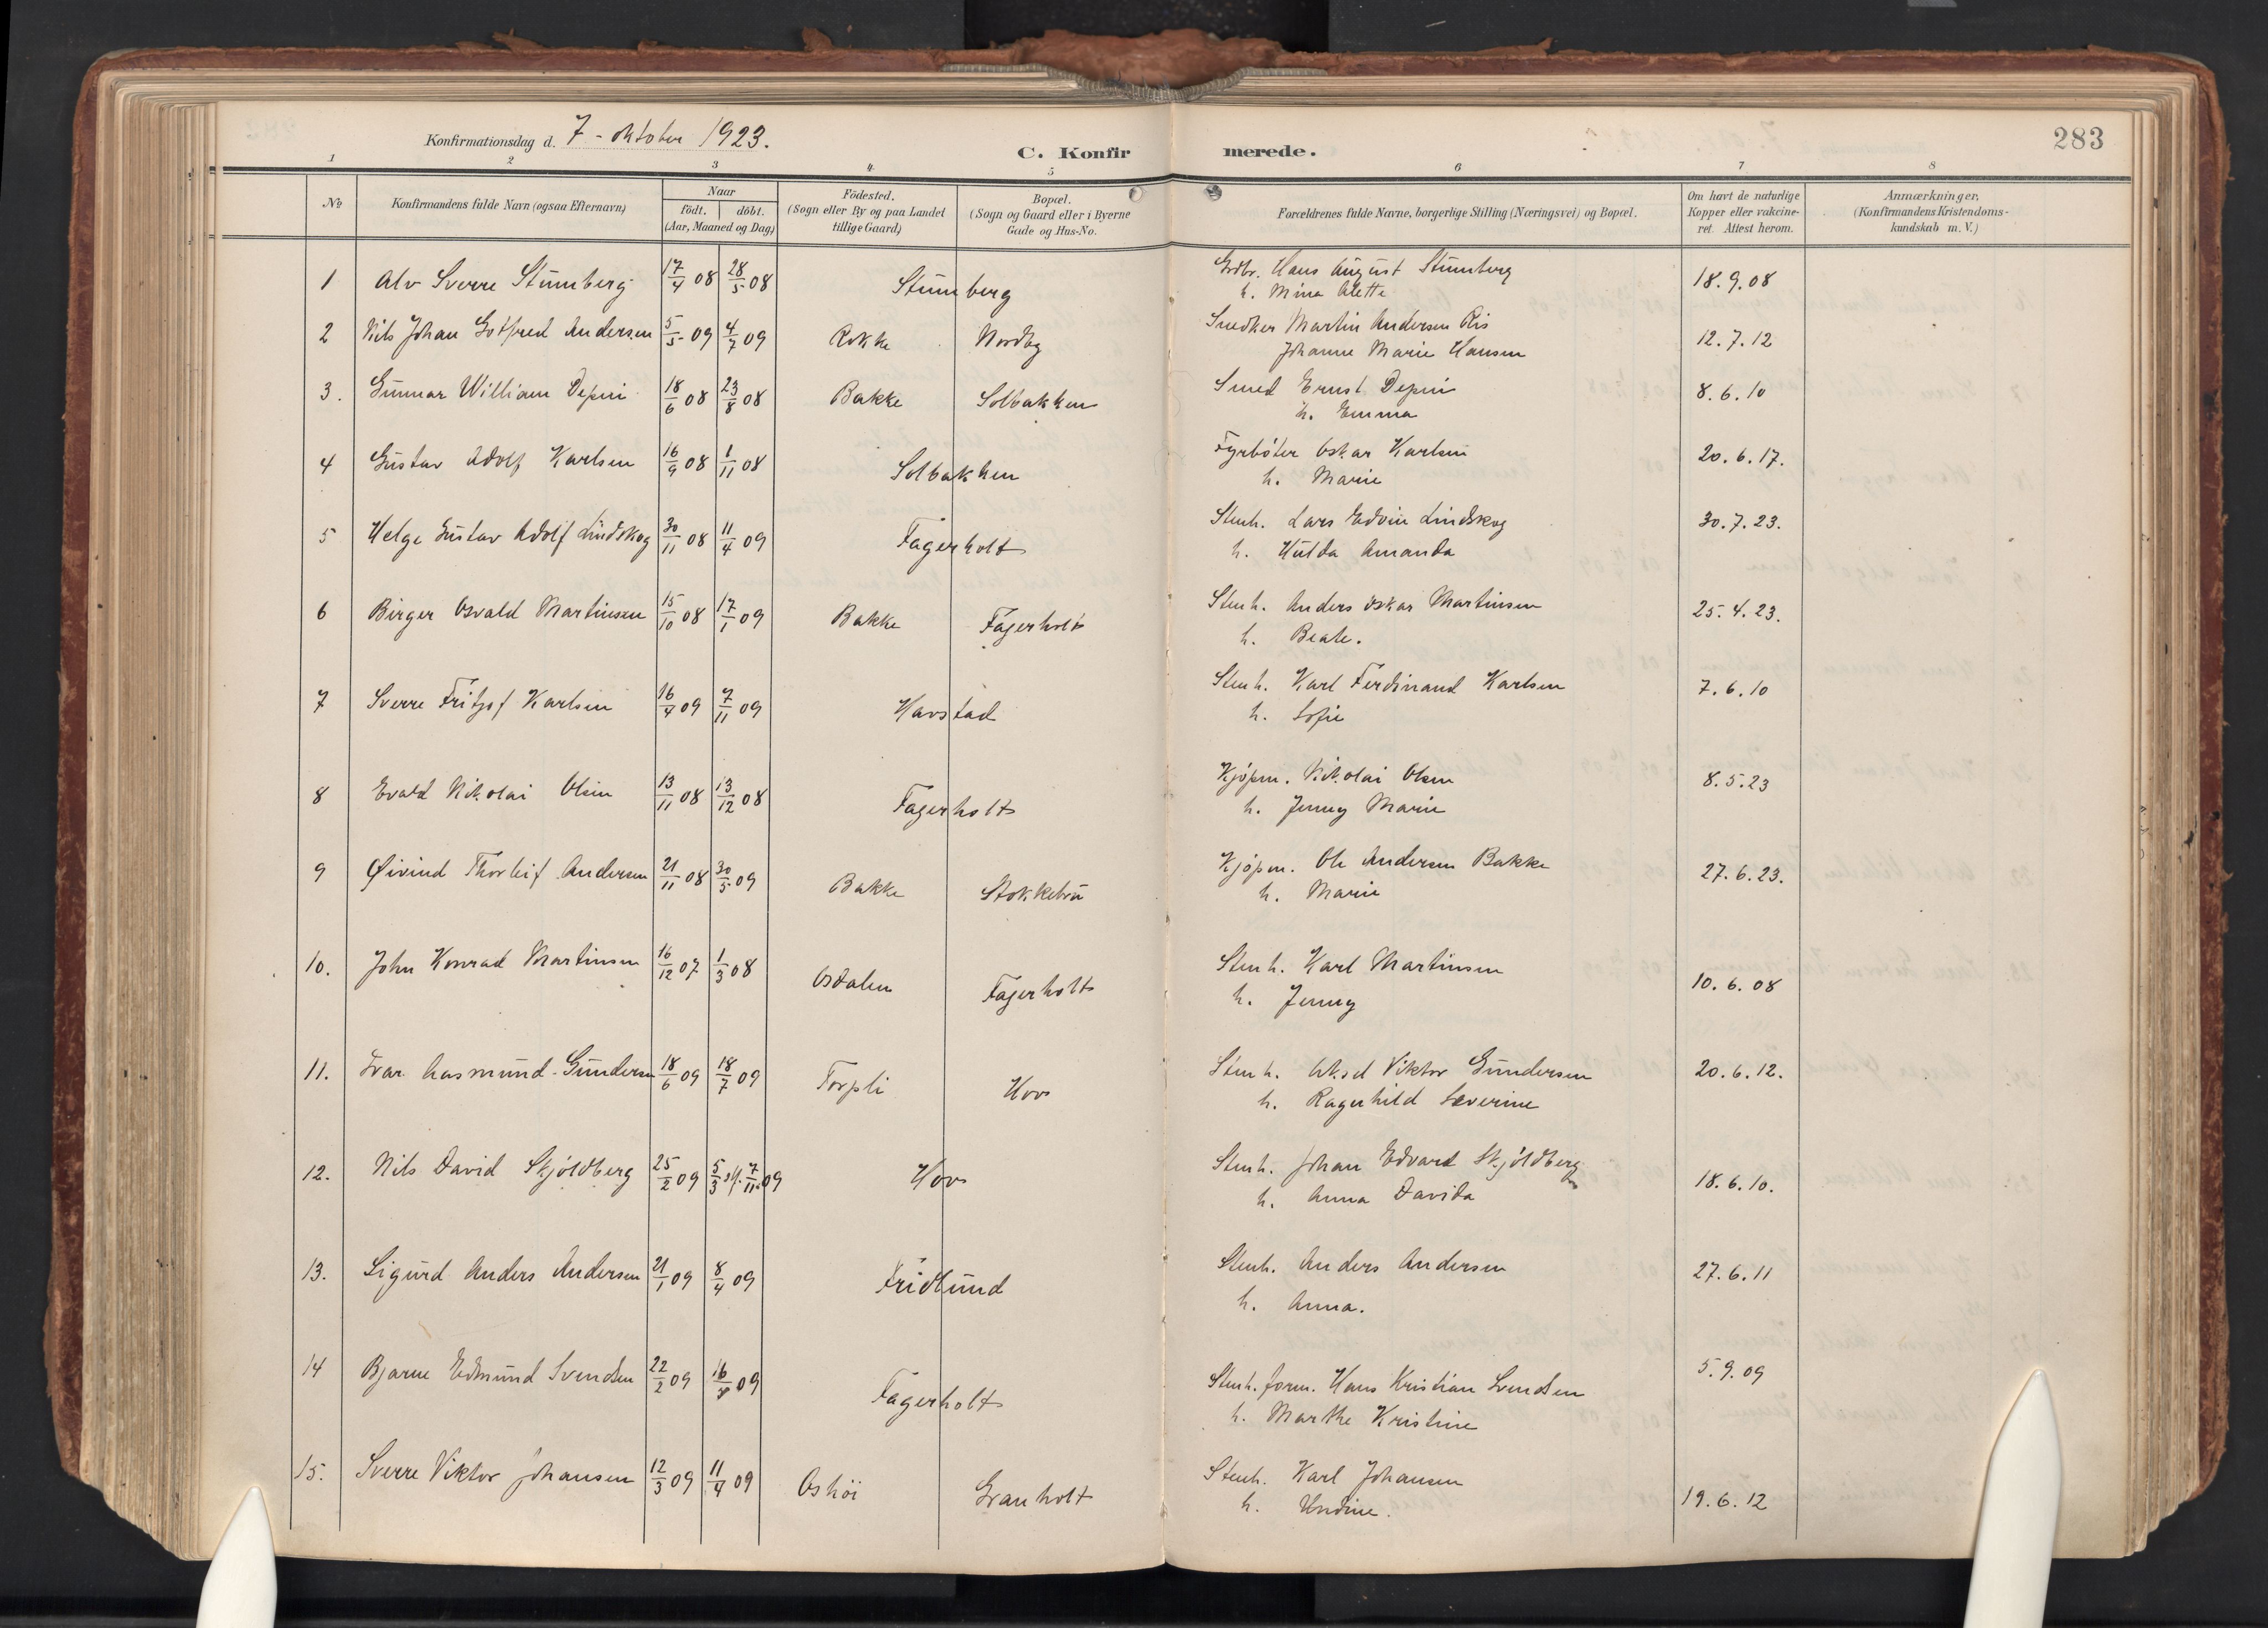 Konfirmationsdag d. 7 - oktober 1923.
C. Konfirmerede.
283
1 2 3 4 5 6 7 8
No
Konfirmandens fulde Navn (ogsaa Efternavn)
Naar
födt. döbt.
(Aar, Maaned og Dag)
Födested.
(Sogn eller By og paa Landet
tillige Gaard)
Bopæl.
(Sogn og Gaard eller i Byerne
Gade og Hus-No.
Forældrenes fulde Navne, borgerlige Stilling (Næringsvei) og Bopæl.
Om havt de naturlige
Kopper eller vakcine-
ret. Attest herom.
Anmærkninger,
(Konfirmandens Kristendoms-
kundskab m. V.)
1 Alv Sverre Stumberg 17/4 08 28/5 08 Stumberg Grdbr. Hans August Stumberg 18.9.08
h. Mina Alette
2 Nils Johan Gotfred Andersen 5/5 09 4/7 09 Rokke Nordby Snedker Martin Andersen Ris 12.7.12
Johanne Marie Hansen
3. Gunnar William Depui 18/6 08 23/8 08 Bakke Solbakken Smed Ernst Depui 8.6.10
h. Emma
4 Gustav Adolf Karlsen 16/9 08 1/11 08 Solbakken Fyrböter Oskar Karlsen 20.6.17.
h. Marie
5 Helge Gustav Adolf Lindskog 30/11 08 11/4 09 Fagerholt Stenh. Lars Edvin Lindskog 30.7.23.
h. Hulda Amanda
6 Birger Osvald Martinsen 15/10 08 17/1 09 Bakke Fagerholt Stenh. Anders Oskar Martinsen 25.4.23.
h. Beate.
7 Sverre Fritjof Karlsen 16/4 09 7/11 09 Havstad Stenh. Karl Ferdinand Karlsen 7.6.10
h. Sofie
8 Evald Nikolai Olsen 13/11 08 13/12 08 Fagerholt Kjöpm. Nikolai Olsen 8.5.23
h. Jenny Marie
9 Øivind Thorleif Andersen 21/11 08 30/5 09 Bakke Stokkebru Kjöpm. Ole Andersen Bakke 27.6.23.
h. Marie
10. John Konrad Martinsen 16/12 07 1/3 08 Osdalen Fagerholt Stenh. Karl Martinsen 10.6.08
h. Jenny
11. Ivar Aasmund Gundersen 18/6 09 18/7 09 Torpli Hov Stenh. Aksel Viktor Gundersen 20.6.12.
h. Ragnhild Severine
12. Nils David Skjöldberg 25/2 09 5/3 st. 7/11 09 Hov Stenh. Johan Edvard Skjöldberg 18.6.10.
h. Anna Davida
13. Sigurd Anders Andersen 21/1 09 8/4 09 Fridlund Stenh. Anders Andersen 27.6.11
h. Anna.
14 Bjarne Edmund Svendsen 22/2 09 16/5 09 Fagerholt Stenh. form. Hans Kristian Svendsen 5.9.09
h. Marthe Kristine
15. Sverre Viktor Johansen 12/3 09 11/4 09 Oshöi Granholt Stenh. Karl Johansen 19.6.12
h. Undine.